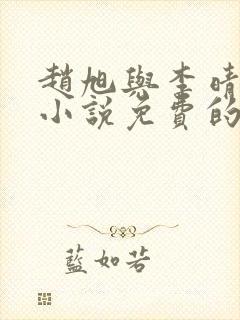 趙旭與李晴
小說免費的
藍如若